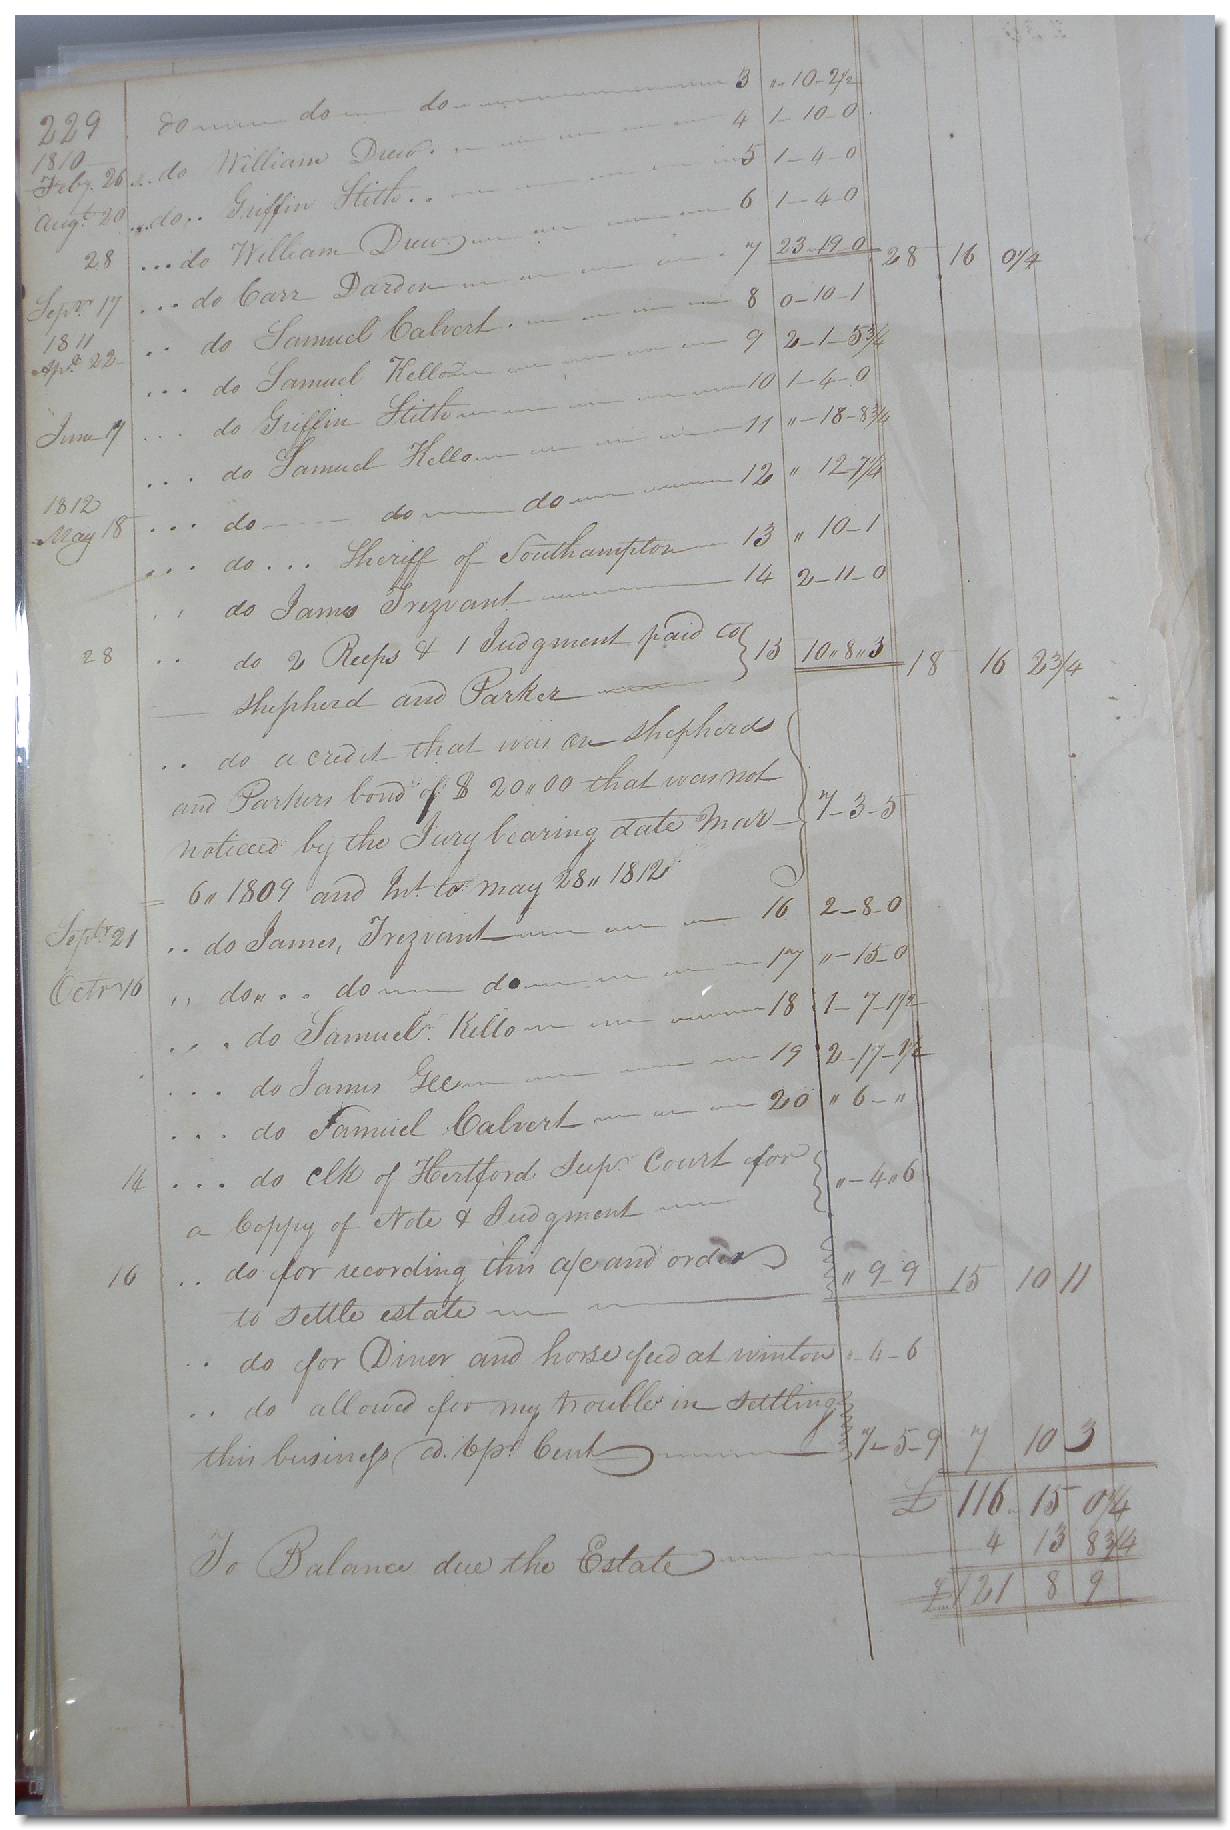 229 do do do 3 " 10-2½
1810
Feby. 26 .. do William Drew. 4 1-10-0
Augt. 20 ... do .. Griffin Stith .. 5 1-4-0
28 ... do William Drew 6 1-4-0
Septr. 17 ... do Carr Darden 7 23-19-0 28 16 0¼
1811
Apl. 22 .. do Samuel Calvert. 8 0-10-1
... do Samuel Kello 9 2-1-5¾
June 7 ... do Griffin Stith 10 1-4-0
... do Samuel Kello 11 "-18-8¾
1812
May 18 ... do do do 12 " 12-7¼
... do ... Sheriff of Southampton 13 " 10-1
.. do James Trezvant 14 2-11-0
28 .. do 2 Recps & 1 Judgment paid to } 15 10"8"3 18 16 2¾
Shepherd and Parker
.. do a credit that was on Shepherd
and Parkers bond of $ 20"00 that was not
noticed by the Jury bearing date Mar 7-3-5
= 6" 1809 and Int. to may 28" 1812
Septr. 21 .. do James, Trezvant 16 2-8-0
Octr. 16 ,, do" .. do do 17 "-15-0
... do Samuel Kello 18 1-7-1½
... do James Gee 19 2-17-½
... do Samuel Calvert 20 " 6-"
14 ... do clk of Hertford Supr. Court for } "-4"6
a Coppy of Note & Judgment
16 .. do for recording this a/c and order } " 9-9 15 10 11
to settle estate
.. do for Diner and horse feed at winton "-4-6
.. do allowed for my trouble in settling
this business @. 6 pr. Cent 7-5-9 7 10 3
£ 116 15 0¼
To Balance due the Estate 4 13 8¾
£ 121 8 9